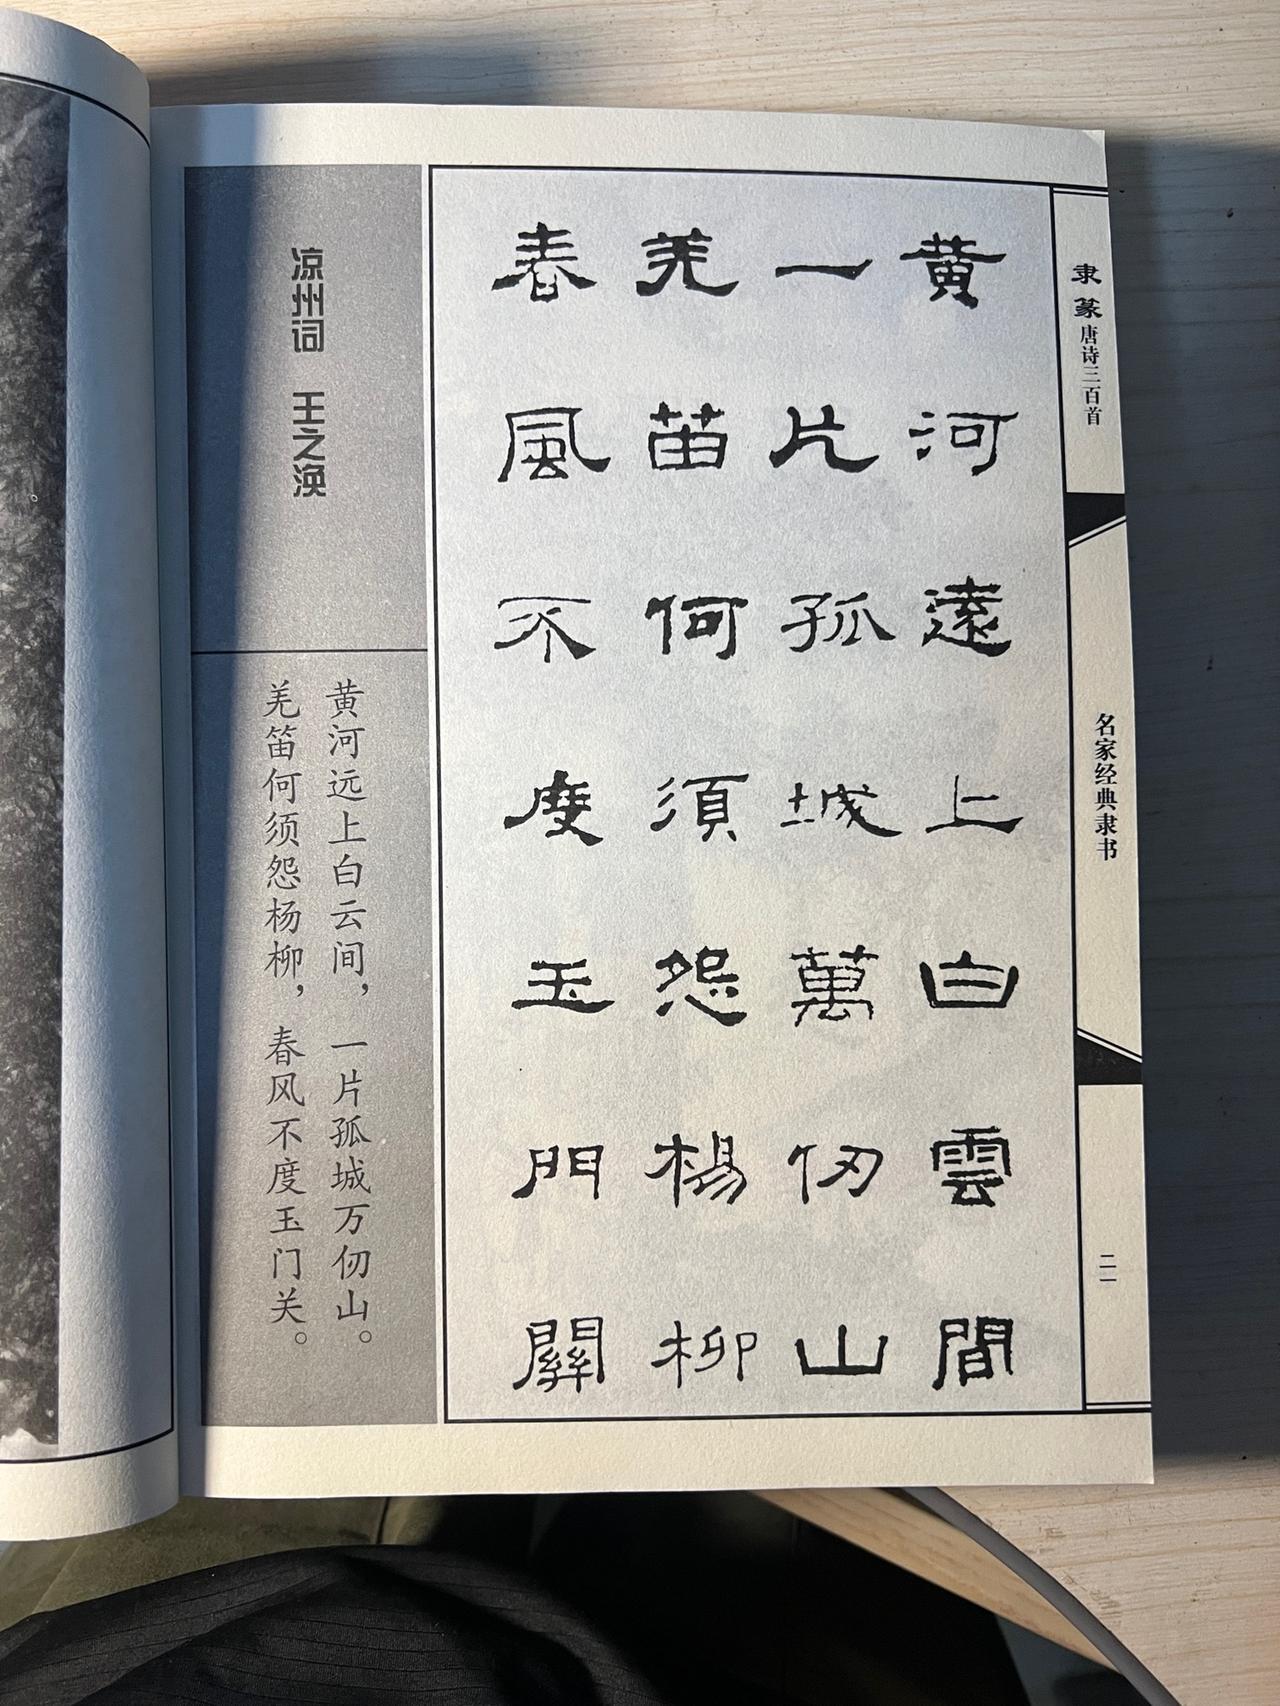 隶篆唐诗三百首
名家经典隶书
二一
黄河遠上白雲間
一片孤城萬仞山
羌苗何須怨楊柳
春風不度玉門關
凉州词 王之涣
黄河远上白云间，一片孤城万仞山。
羌笛何须怨杨柳，春风不度玉门关。